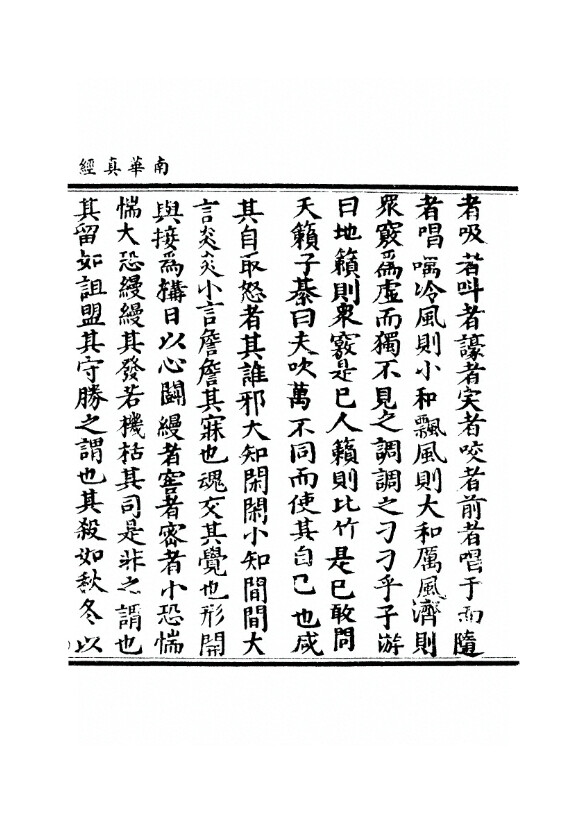 南華真經
者吸者叫者譹者宎者咬者前者唱于而隨
者唱喁冷風則小和飄風則大和厲風濟則
眾竅為虛而獨不見之調調之刁刁乎子游
曰地籟則眾竅是已人籟則比竹是已敢問
天籟子綦曰夫吹萬不同而使其自己也咸
其自取怒者其誰邪大知閑閑小知間間大
言炎炎小言詹詹其寐也魂交其覺也形開
與接為搆日以心鬭縵者窖者密者小恐惴
惴大恐縵縵其發若機栝其司是非之謂也
其留如詛盟其守勝之謂也其殺如秋冬以